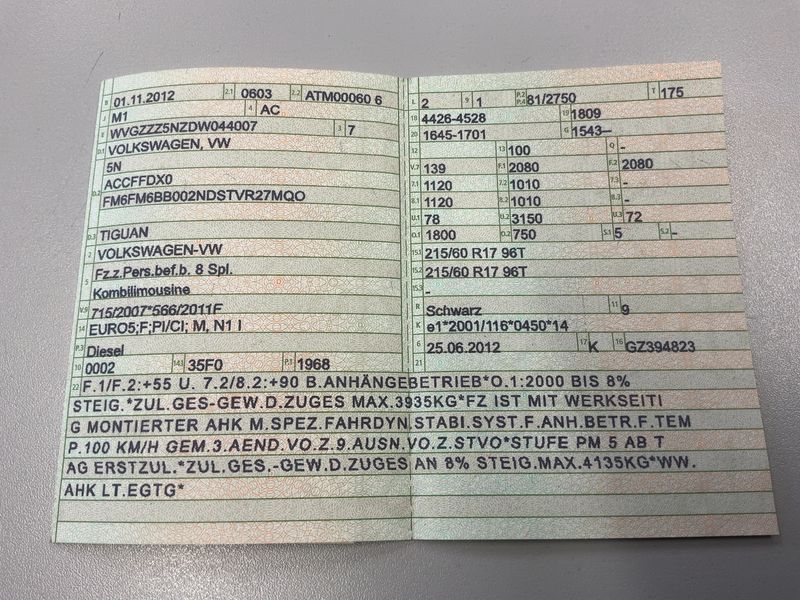 B 01.11.2012 2.1 0603 2.2 ATM00060 6
J M1 4 AC
E WVGZZZ5NZDW044007 3 7
D.1 VOLKSWAGEN, VW
5N
D.2 ACCFFDX0
FM6FM6BB002NDSTVR27MQO
D.3 TIGUAN
2 VOLKSWAGEN-VW
5 Fz.z.Pers.bef.b. 8 Spl.
Kombilimousine
V.9 715/2007*566/2011F
14 EURO5;F;PI/CI; M, N1 I
P.3 Diesel
10 0002 14.1 35F0 P.1 1968
L 2 9 1 P.2 P.4 81/2750 T 175
18 4426-4528 19 1809
20 1645-1701 G 1543–
12 13 100 Q -
V.7 139 F.1 2080 F.2 2080
7.1 1120 7.2 1010 7.3 -
8.1 1120 8.2 1010 8.3 -
U.1 78 U.2 3150 U.3 72
O.1 1800 O.2 750 S.1 5 S.2 -
15.1 215/60 R17 96T
15.2 215/60 R17 96T
15.3 -
R Schwarz 11 9
K e1*2001/116*0450*14
6 25.06.2012 17 K 16 GZ394823
21
22 F.1/F.2:+55 U. 7.2/8.2:+90 B.ANHÄNGEBETRIEB*O.1:2000 BIS 8%
STEIG.*ZUL.GES-GEW.D.ZUGES MAX.3935KG*FZ IST MIT WERKSEITI
G MONTIERTER AHK M.SPEZ.FAHRDYN.STABI.SYST.F.ANH.BETR.F.TEM
P.100 KM/H GEM.3.AEND.VO.Z.9.AUSN.VO.Z.STVO*STUFE PM 5 AB T
AG ERSTZUL.*ZUL.GES.-GEW.D.ZUGES AN 8% STEIG.MAX.4135KG*WW.
AHK LT.EGTG*